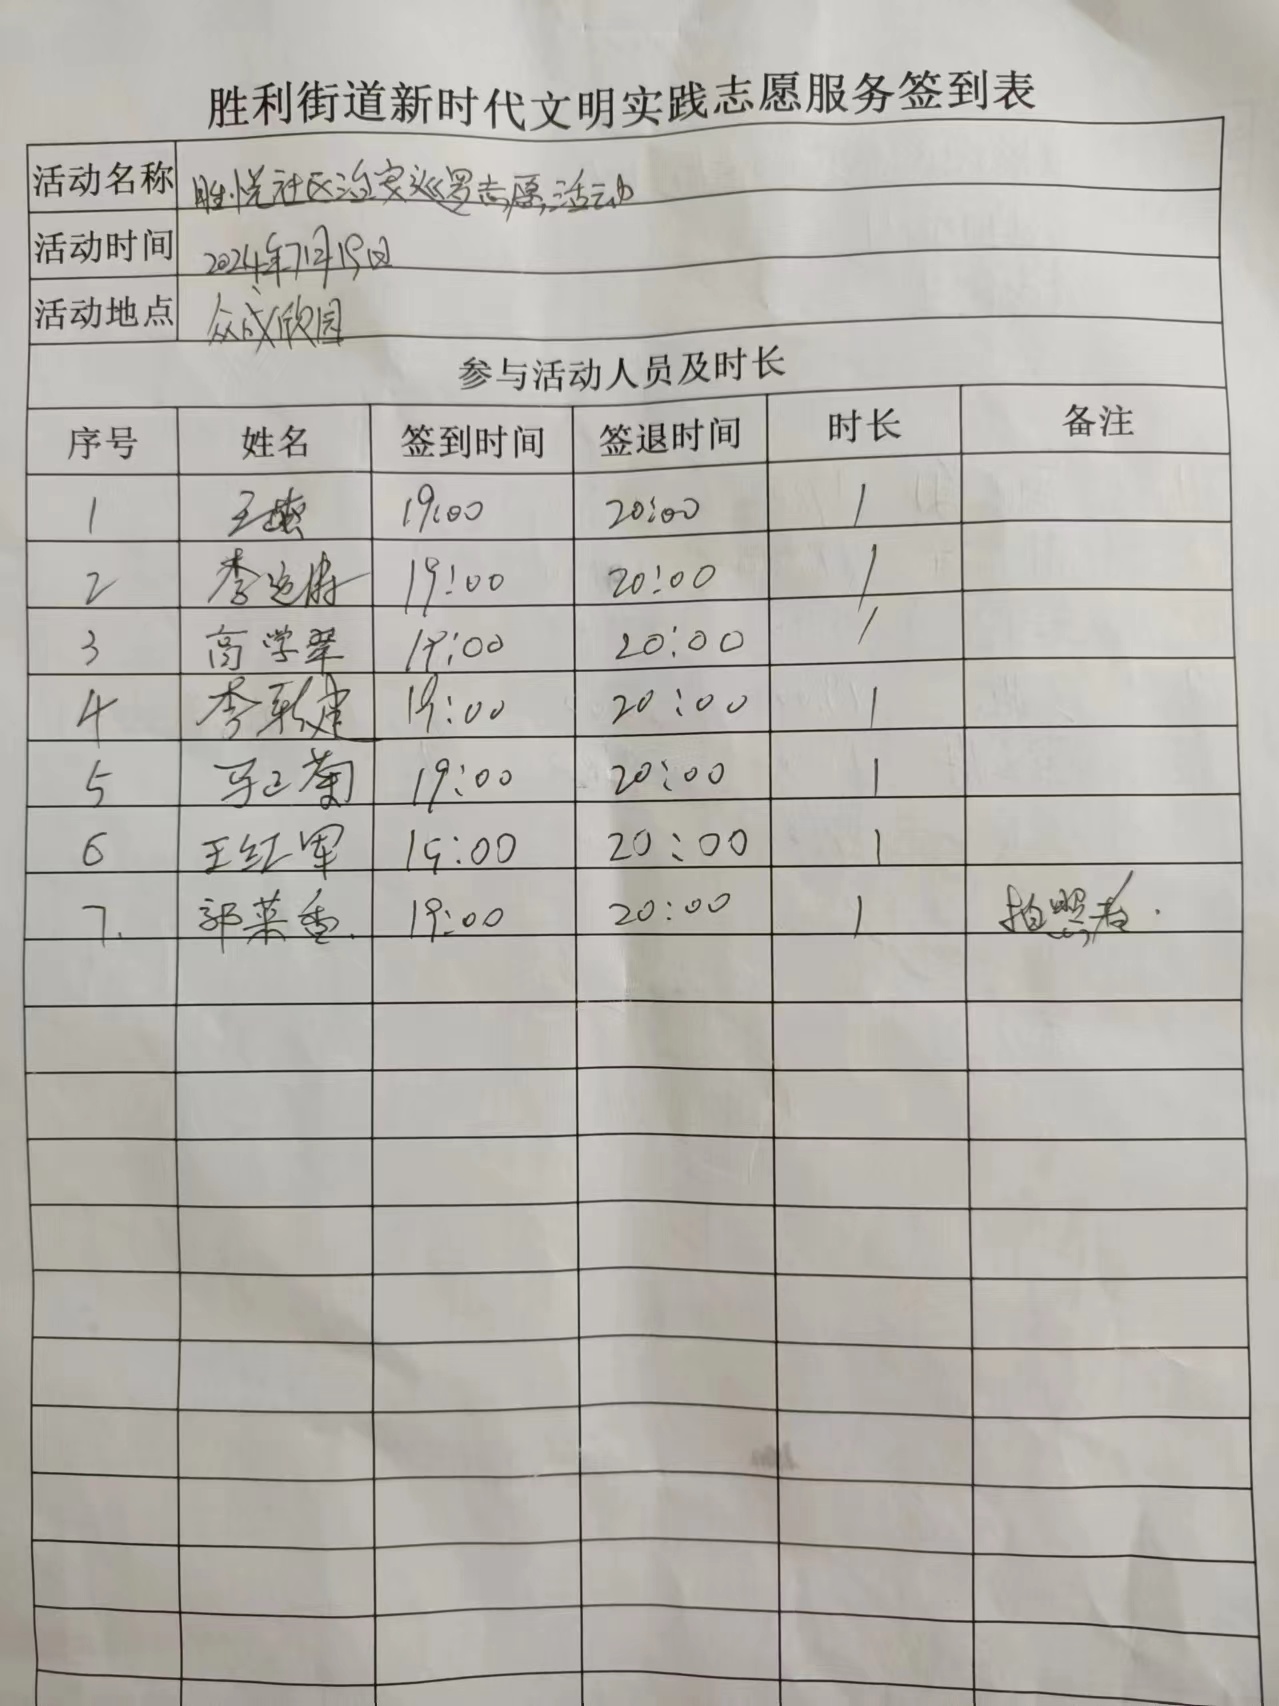 胜利街道新时代文明实践志愿服务签到表
活动名称 胜悦社区治安巡逻志愿活动
活动时间 2024年7月19日
活动地点 众成欣园
参与活动人员及时长
序号 姓名 签到时间 签退时间 时长 备注
1 王 19:00 20:00 1
2 李 19:00 20:00 1
3 高学翠 19:00 20:00 1
4 李新建 19:00 20:00 1
5 马卫菊 19:00 20:00 1
6 王红军 19:00 20:00 1
7. 郭菜香. 19:00 20:00 1 拍照者.